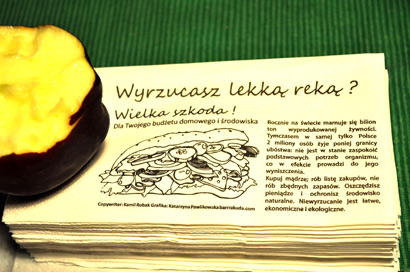 Wyrzucasz lekką reką ?
Wielka szkoda !
Dla Twojego budżetu domowego i środowiska
Rocznie na świecie marnuje się bilion
ton wyprodukowanej żywności.
Tymczasem w samej tylko Polsce
2 miliony osób żyje poniżej granicy
ubóstwa: nie jest w stanie zaspokoić
podstawowych potrzeb organizmu,
co w efekcie prowadzi do jego
wyniszczenia.
Kupuj mądrze; rób listę zakupów, nie
rób zbędnych zapasów. Oszczędzisz
pieniądze i ochronisz środowisko
naturalne. Niewyrzucanie jest łatwe,
ekonomiczne i ekologiczne.
Copywriter: Kamil Robak Grafika: Katarzyna Pawlikowska/barrakuds.com